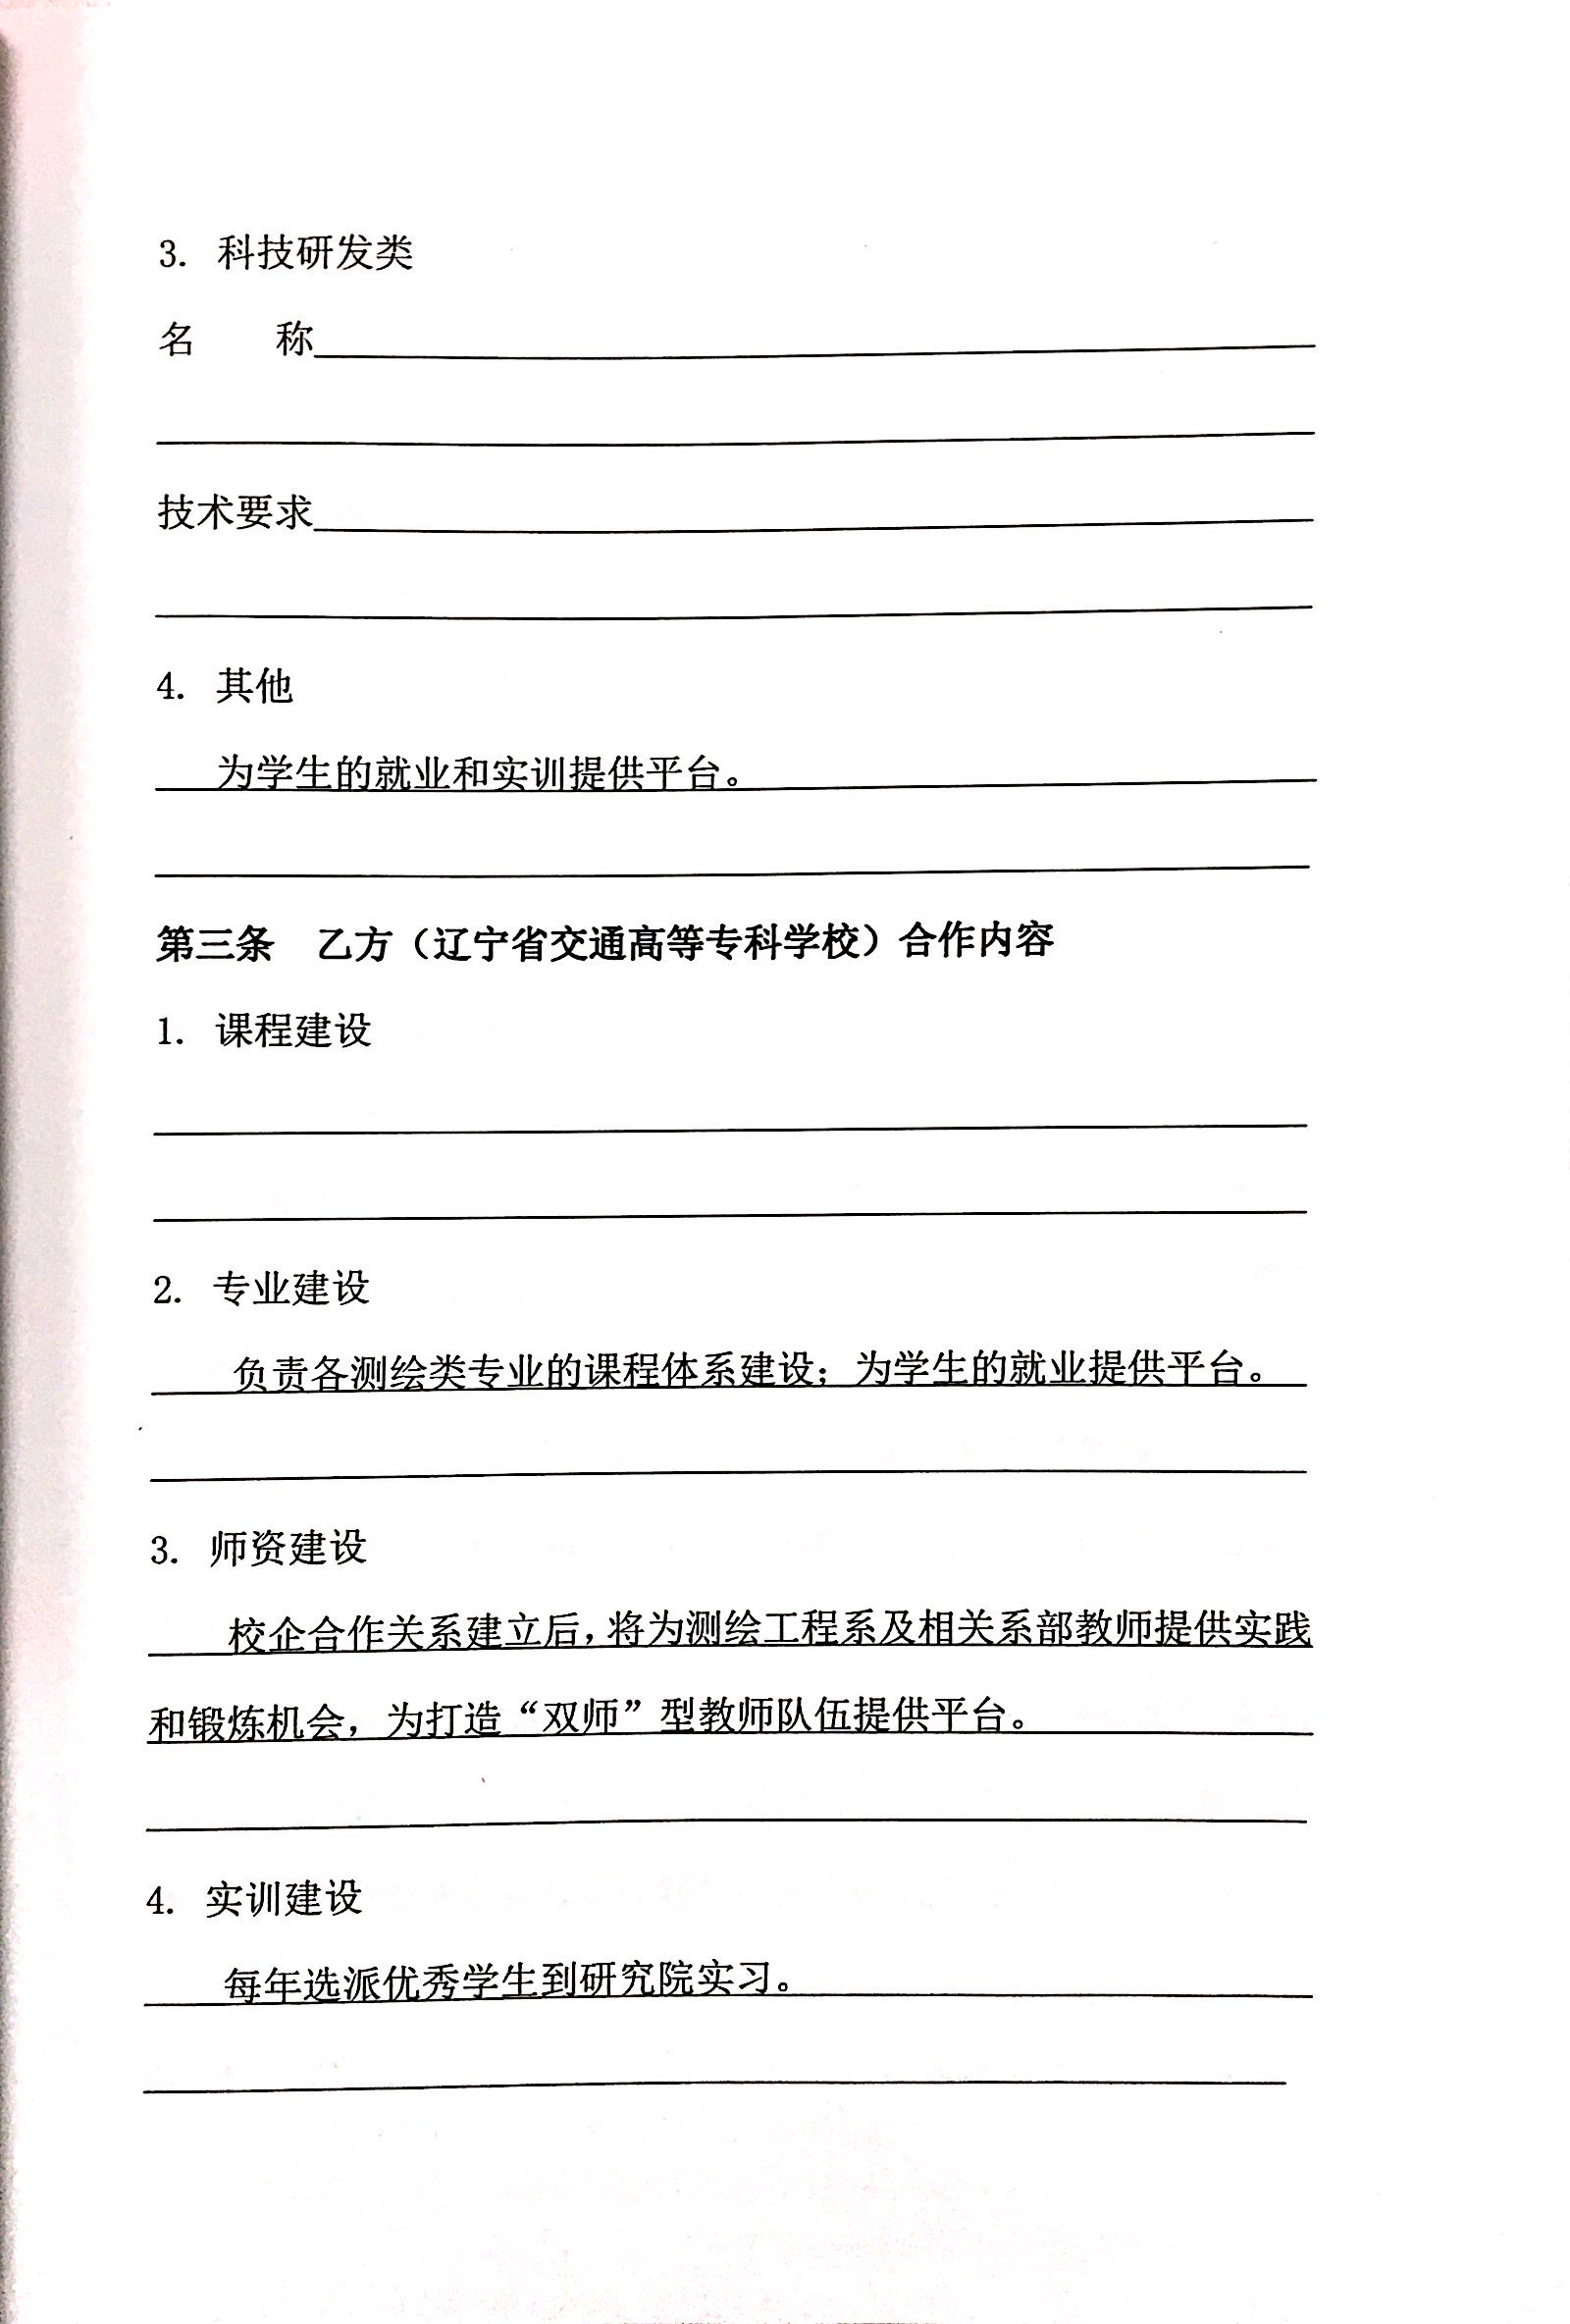 3. 科技研发类
名　　称
技术要求
4. 其他
为学生的就业和实训提供平台。
第三条　乙方（辽宁省交通高等专科学校）合作内容
1. 课程建设
2. 专业建设
负责各测绘类专业的课程体系建设；为学生的就业提供平台。
3. 师资建设
校企合作关系建立后，将为测绘工程系及相关系部教师提供实践
和锻炼机会，为打造“双师”型教师队伍提供平台。
4. 实训建设
每年选派优秀学生到研究院实习。